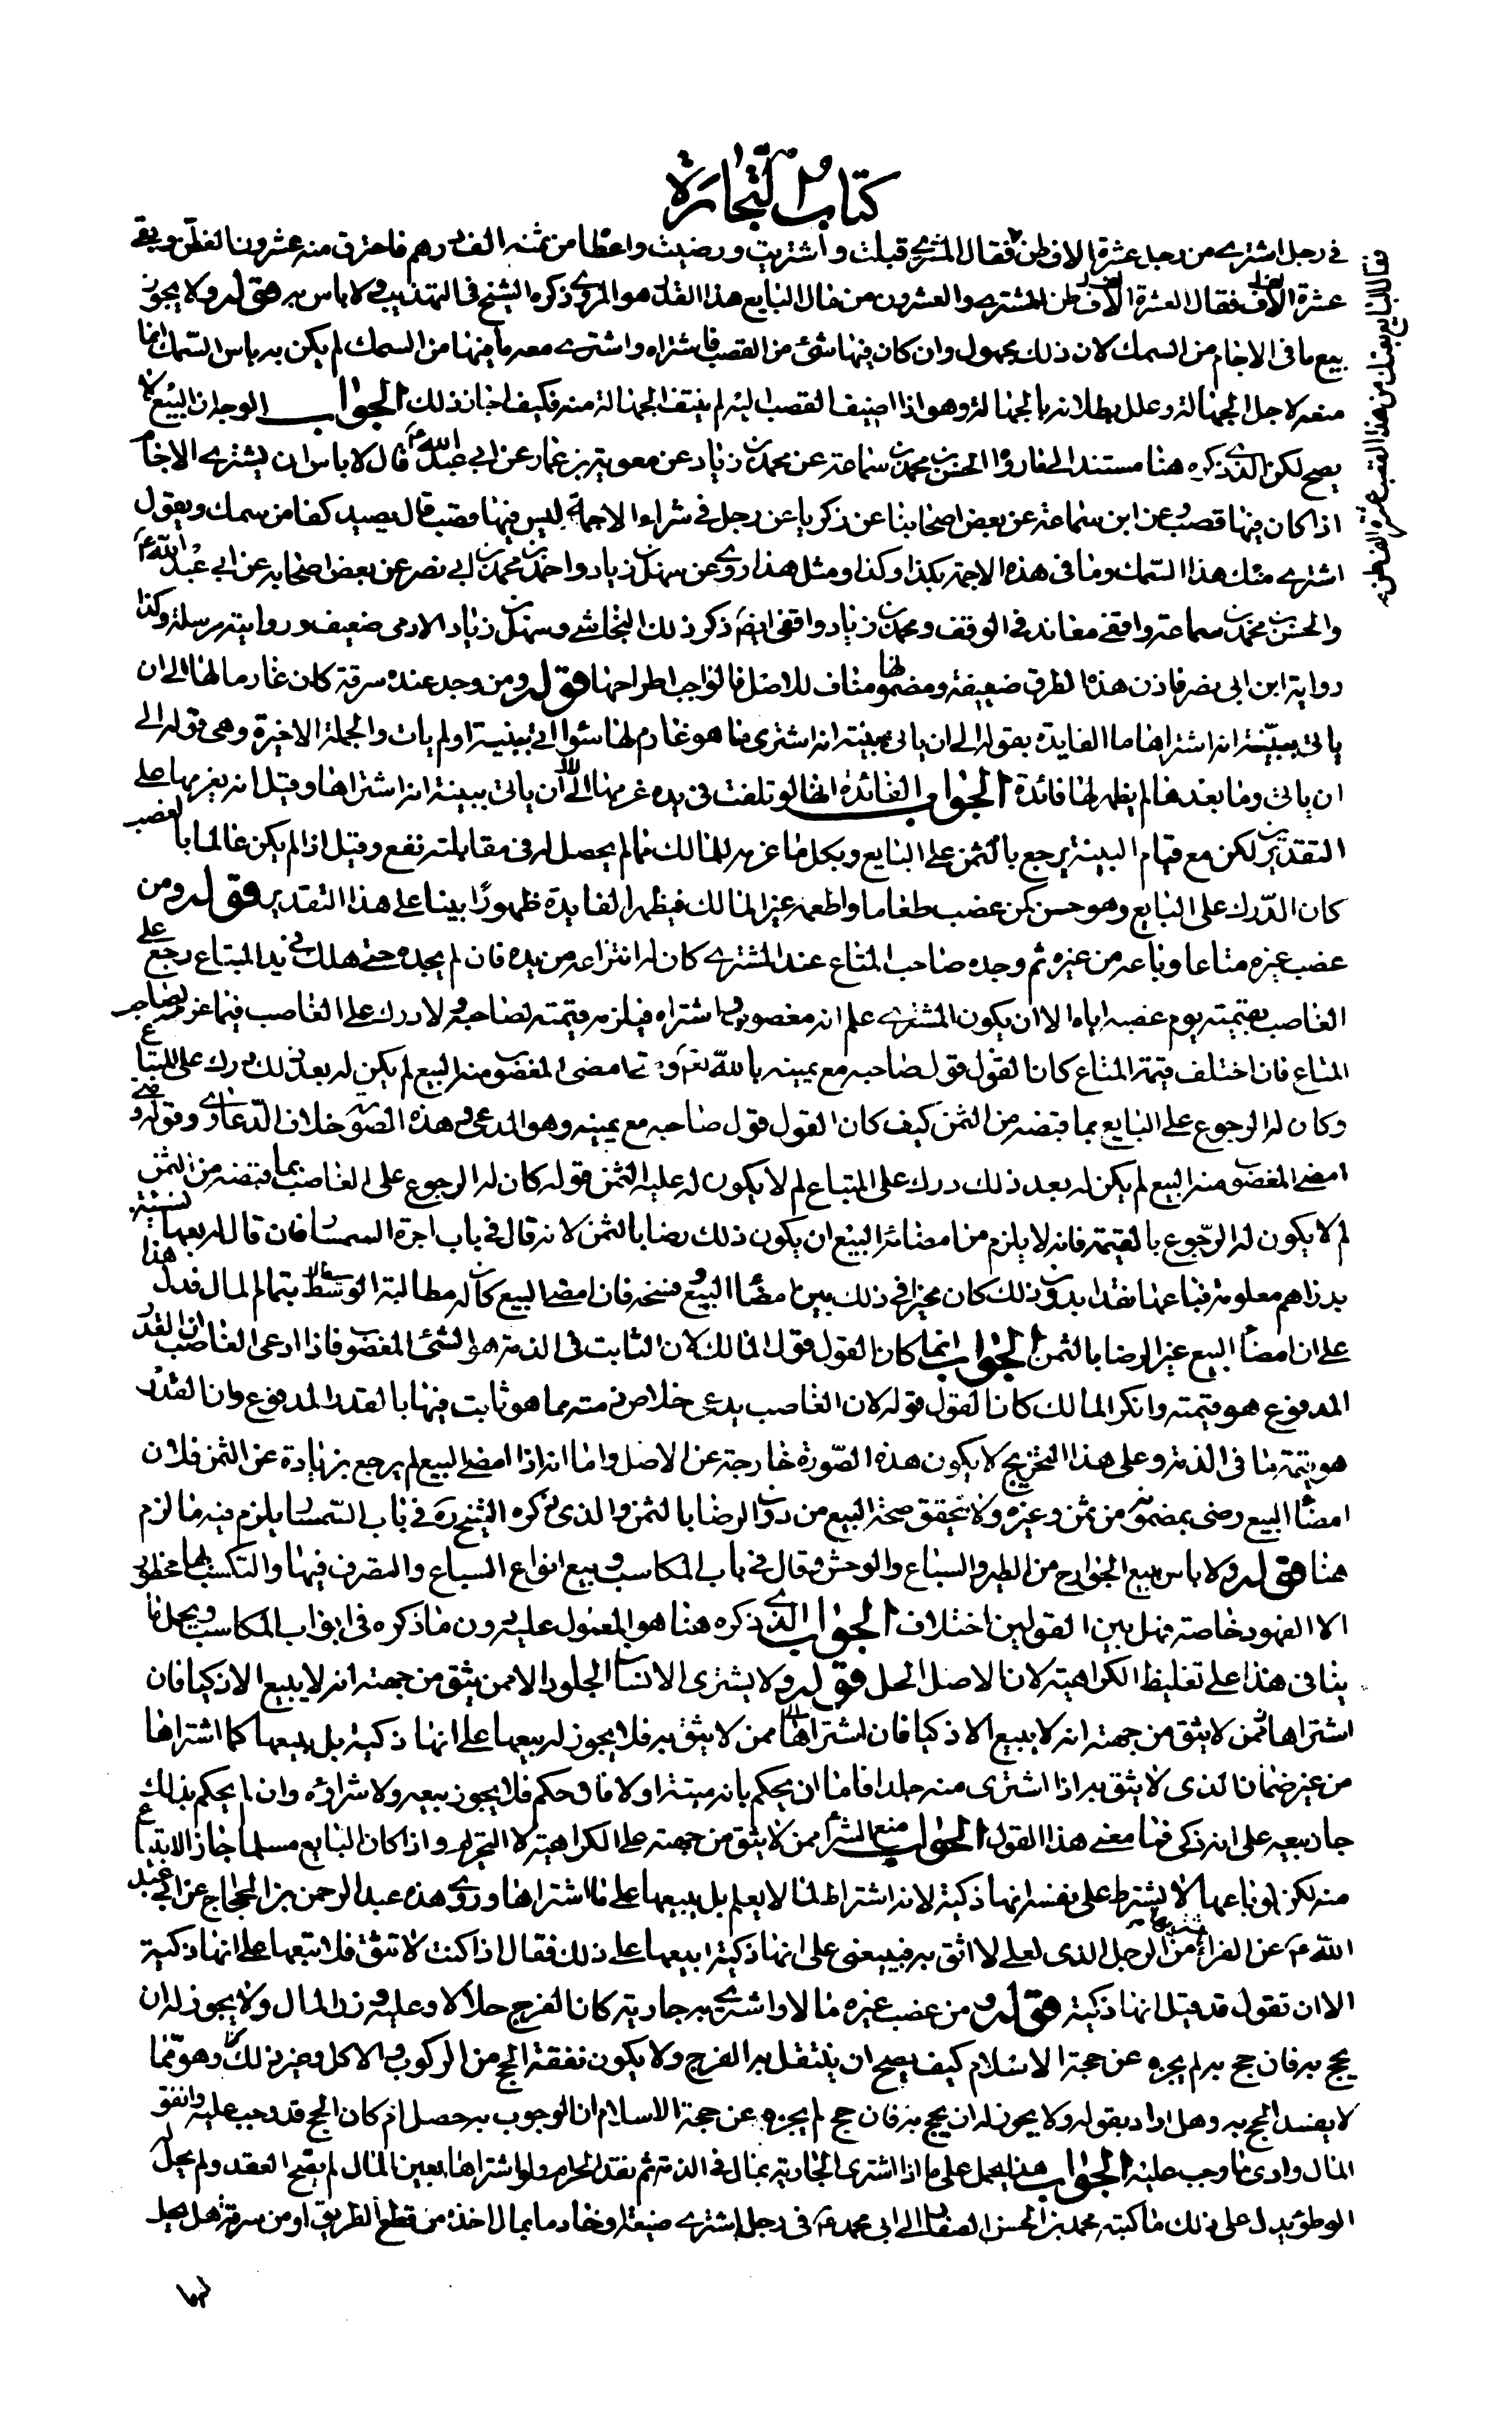 كتاب التجارة
في رجل اشترى من رجل عشرة الاف طن فقال المشترى قبلت واشتريت ورضيت واعطا من ثمنه الف درهم فاحترق منه عشرون الف طن وبقى
عشرة الاف فقال العشرة الاف طن للمشترى والعشرون من مال البايع هذا القدر هو المروى ذكره الشيخ في التهذيب ولا باس به قوله ولا يجوز
بيع ما في الاجام من السمك لان ذلك مجهول وان كان فيها شئ من القصب فاشتراه واشترى معه ما فيها من السمك لم يكن به باس السمك انما
منعه لاجل الجهالة وعلل بطلانه بالجهالة وهو اذا اضيف القصب اليه لم ينتف الجهالة منه فكيف اجاز ذلك الجواب الوجه ان البيع لا
يصح لكن الذى ذكره هنا مستند الى ما رواه الحسن بن محمد بن سماعة عن محمد بن زياد عن معوية بن عمار عن ابى عبد الله ع قال لا باس ان يشترى الاجام
اذا كان فيها قصب وعن ابن سماعة عن بعض اصحابنا عن زكريا عن رجل في شراء الاجمة ليس فيها قصب قال يصيد كفا من سمك ويقول
اشترى منك هذا السمك وما في هذه الاجمة بكذا وكذا ومثل هذا روى عن سهل بن زياد واحمد بن محمد بن ابى نصر عن بعض اصحابه عن ابى عبد الله ع
والحسن بن محمد بن سماعة واقفى معاند في الوقف ومحمد بن زياد واقفى ايضا ذكر ذلك النجاشى وسهل بن زياد الادمى ضعيف وروايته مرسلة وكذا
رواية ابن ابى نصر فاذن هذه الطرق ضعيفة ومضمونها مناف للاصل فالواجب اطراحها قوله ومن وجد عنده سرقة كان غارما لها الى ان
ياتى ببينة انه اشتراها ما الفايدة بقوله الى ان ياتى ببينة انه اشترى بها هو غارم لها سواء اتى ببينة او لم يات والجملة الاخيرة وهى قوله الى
ان ياتى وما بعدها لم يظهر لها فائدة الجواب الفائدة انها لو تلفت في يده غرمها الى ان ياتى ببينة انه اشتراها وقيل انه يغرمها على
التقديرين لكن مع قيام البينة يرجع بالثمن على البايع وبكل ما غرمه للمالك مما لم يحصل له في مقابلته نفع وقيل اذا لم يكن عالما بالغصب
كان الدرك على البايع وهو حسن كمن غصب طعاما واطعمه غير المالك فيظهر الفايدة ظهورا بينا على هذا التقدير قوله ومن
غصب غيره متاعا وباعه من غيره ثم وجده صاحب المتاع عند المشترى كان له انتزاعه من يده فان لم يجده حتى هلك في يد المبتاع رجع على
الغاصب بقيمته يوم غصبه اياه الا ان يكون المشترى علم انه مغصوب واشتراه فيلزمه قيمته لصاحبه ولا درك على الغاصب فيما غرمه لصاحب
المتاع فان اختلف قيمة المتاع كان القول قول صاحبه مع يمينه بالله تعالى ومتى امضى المغصوب منه البيع لم يكن له بعد ذلك درك على المبتاع
وكان له الرجوع على البايع بما قبضه من الثمن كيف كان القول قول صاحبه مع يمينه وهو المدعى في هذه الصورة خلاف الدعاوى وقوله ومتى
امضى المغصوب منه البيع لم يكن له بعد ذلك درك على المبتاع لم لا يكون له عليه الثمن قوله كان له الرجوع على الغاصب بما قبضه من الثمن
لم لا يكون له الرجوع بالقيمة فانه لا يلزم من امضائه البيع ان يكون ذلك رضا بالثمن لانه قال في باب اجرة السمسار فان قال له بعها نسية
بدراهم معلومة فباعها نقدا بدون ذلك كان مخيرا في ذلك بين امضاء البيع وفسخه فان امضى البيع كان له مطالبة الوسط بتمام المال فدل هذا
على ان امضاء البيع غير الرضا بالثمن الجواب انما كان القول قول المالك لان الثابت في الذمة هو الشئ المغصوب فاذا ادعى الغاصب ان القدر
المدفوع هو قيمته وانكر المالك كان القول قوله لان الغاصب يدعى خلاص ذمته مما هو ثابت فيها بالقدر المدفوع وان القدر
هو قيمة ما في الذمة وعلى هذا التخريج لا يكون هذه الصورة خارجة عن الاصل واما انه اذا امضى البيع لم يرجع بزيادة عن الثمن فلان
امضاء البيع رضى بمضمونه من ثمن وغيره ولا يتحقق صحة البيع من دون الرضا بالثمن والذى ذكره الشيخ ره في باب السمسار يلزم فيه ما لزم
هنا قوله ولا باس ببيع الجوارح من الطير والسباع والوحش وقال في باب المكاسب وبيع انواع السباع والتصرف فيها والتكسب بها محظور
الا الفهود خاصة فهل بين القولين اختلاف الجواب الذى ذكره هنا هو المعول عليه دون ما ذكره في ابواب المكاسب ويحمل ما
ينافى هذا على تغليظ الكراهية لان الاصل الحل قوله ولا يشترى الانسان الجلود الا ممن يثق من جهته انه لا يبيع الا ذكيا فان
اشتراها ممن لا يثق من جهته انه لا يبيع الا ذكيا فان اشتراها ممن لا يثق به فلا يجوز له بيعها على انها ذكية بل يبيعها كما اشتراها
من غير ضمان الذى لا يثق به اذا اشترى منه جلدا فاما ان يحكم بانه ميتة اولا فان حكم فلا يجوز بيعه ولا شراؤه وان لم يحكم بذلك
جاز بيعه على انه ذكى فما معنى هذا القول الجواب منع الشراء ممن لا يثق من جهته على الكراهية لا التحريم واذا كان البايع مسلما جاز الابتياع
منه لكن لو باعها لا يشترط على نفسه انها ذكية لانه اشتراط لما لا يعلم بل يبيعها على ما اشتراها وروى هذه عبد الرحمن بن الحجاج عن ابى عبد
الله ع عن الفراء اشتريها من الرجل الذى لعلى لا اثق به فيبيعنى على انها ذكية ابيعها على ذلك فقال اذا كنت لا تثق فلا تبعها على انها ذكية
الا ان تقول قد قيل انها ذكية قوله ومن غصب غيره مالا واشترى به جارية كان الفرج حلالا وعليه وزر المال ولا يجوز له ان
يحج به فان حج به لم يجزه عن حجة الاسلام كيف يصح ان ينتقل به الفرج ولا يكون نفقة الحج من الركوب والاكل وغير ذلك وهو مما
لا يفسد الحج به وهل اراد بقوله ولا يجوز له ان يحج به فان حج لم يجزه عن حجة الاسلام ان الوجوب به حصل ام كان الحج قد وجب عليه وانفق
المال وادى ما وجب عليه الجواب هذا يحمل على ما اذا اشترى الجارية بمال في الذمة ثم نقد الحرام ولو اشتراها بعين المال لم يصح العقد ولم يحل له
الوطؤ يدل على ذلك ما كتبه محمد بن الحسن الصفار الى ابى محمد ع في رجل اشترى ضيعة او خادما بمال اخذه من قطع الطريق او من سرقة هل يحل
لها
فقال البايع بعتك من هذا القصب عشرة الف طن